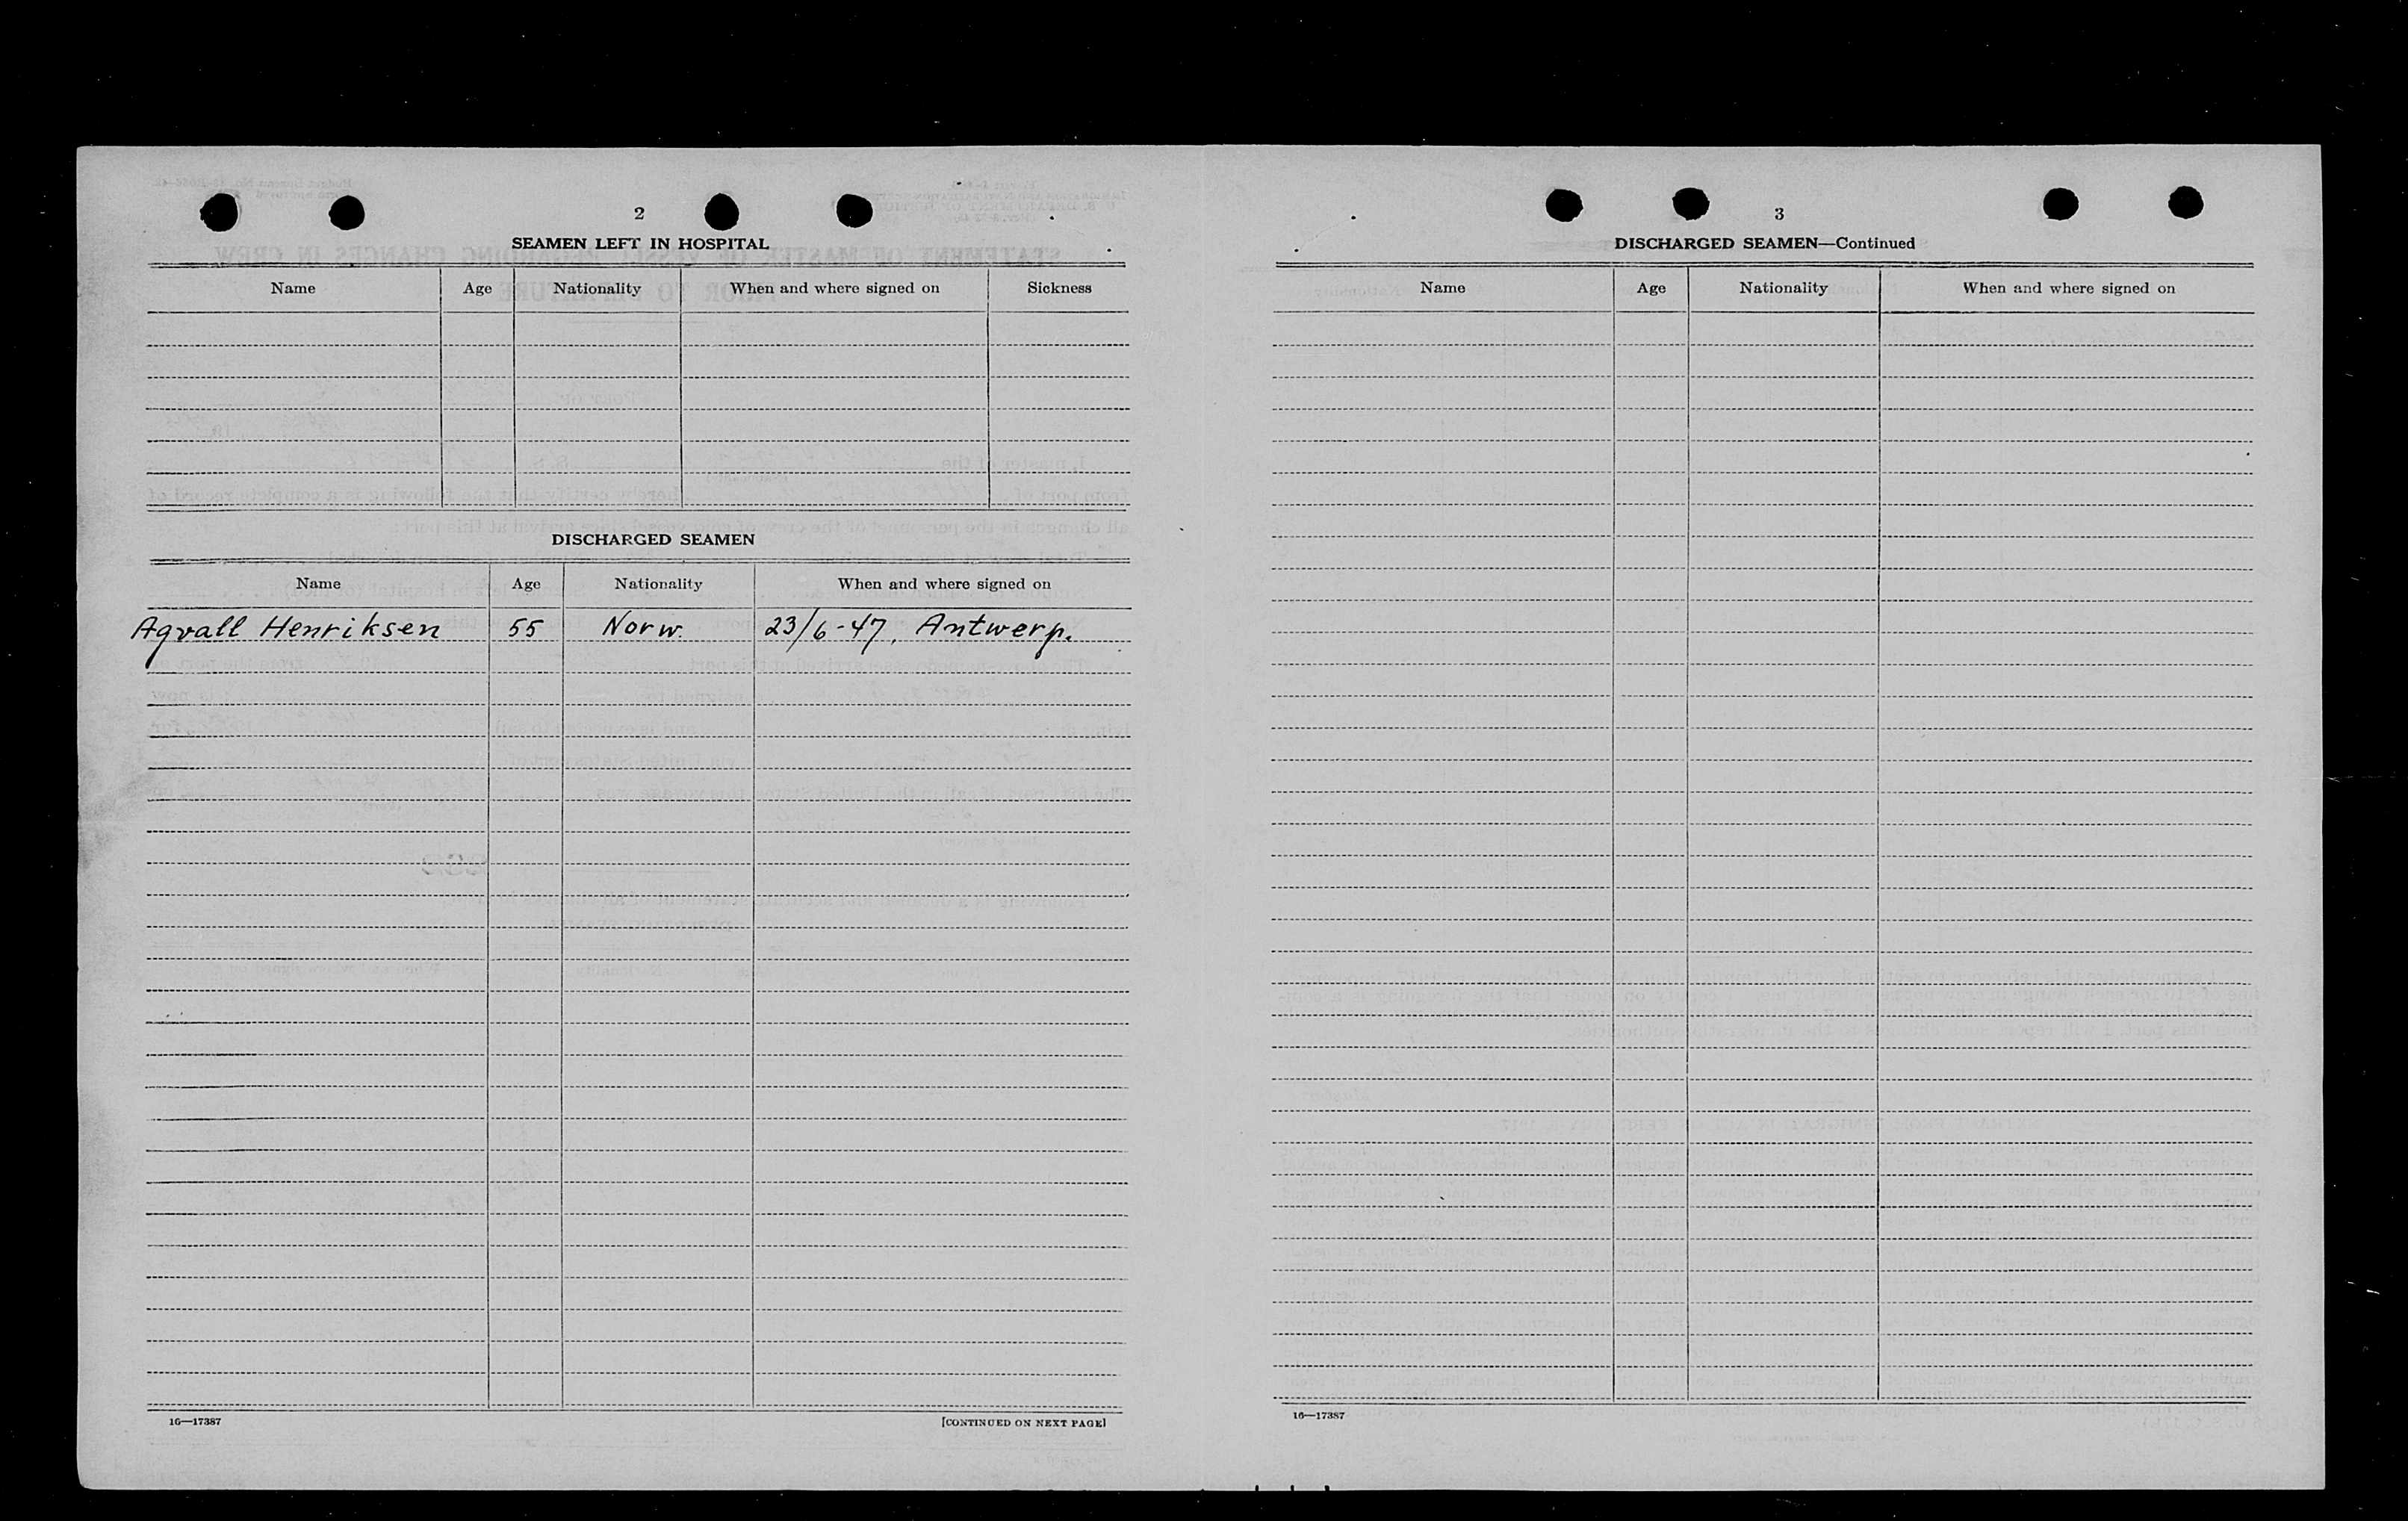 2
SEAMEN LEFT IN HOSPITAL
Name Age Nationality When and where signed on Sickness
DISCHARGED SEAMEN
Name Age Nationality When and where signed on
Agvall Henriksen 55 Norw. 23/6-47, Antwerp.
16—17387 [CONTINUED ON NEXT PAGE]
3
DISCHARGED SEAMEN—Continued
Name Age Nationality When and where signed on
16—17387